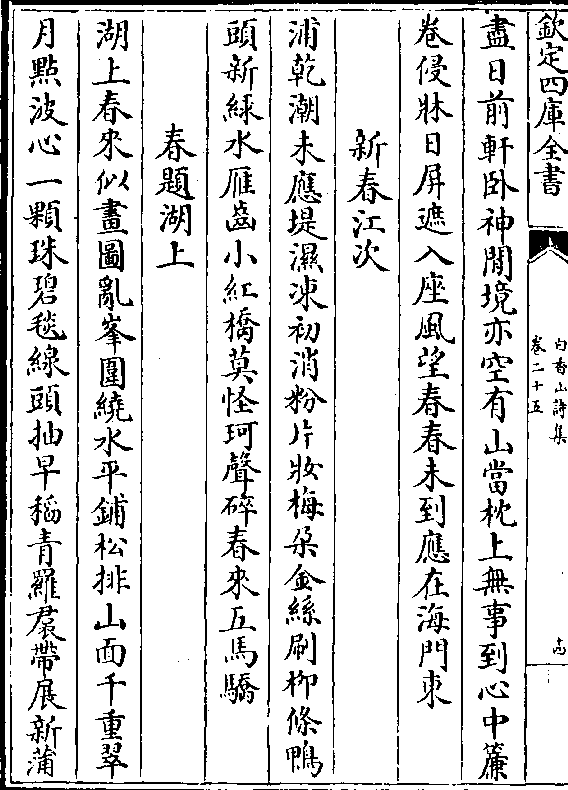 欽定四庫全書
白香山詩集
卷二十五
盡日前軒卧神閒境亦空有山當枕上無事到心中簾
卷侵牀日屏遮入座風望春春未到應在海門東
新春江次
浦乾潮未應堤濕凍初消粉片妝梅朶金絲刷柳條鴨
頭新綠水雁齒小紅橋莫怪珂聲碎春來五馬驕
春題湖上
湖上春來似畫圖亂峯圍繞水平鋪松排山面千重翠
月點波心一顆珠碧毯線頭抽早稻青羅裙帶展新蒲